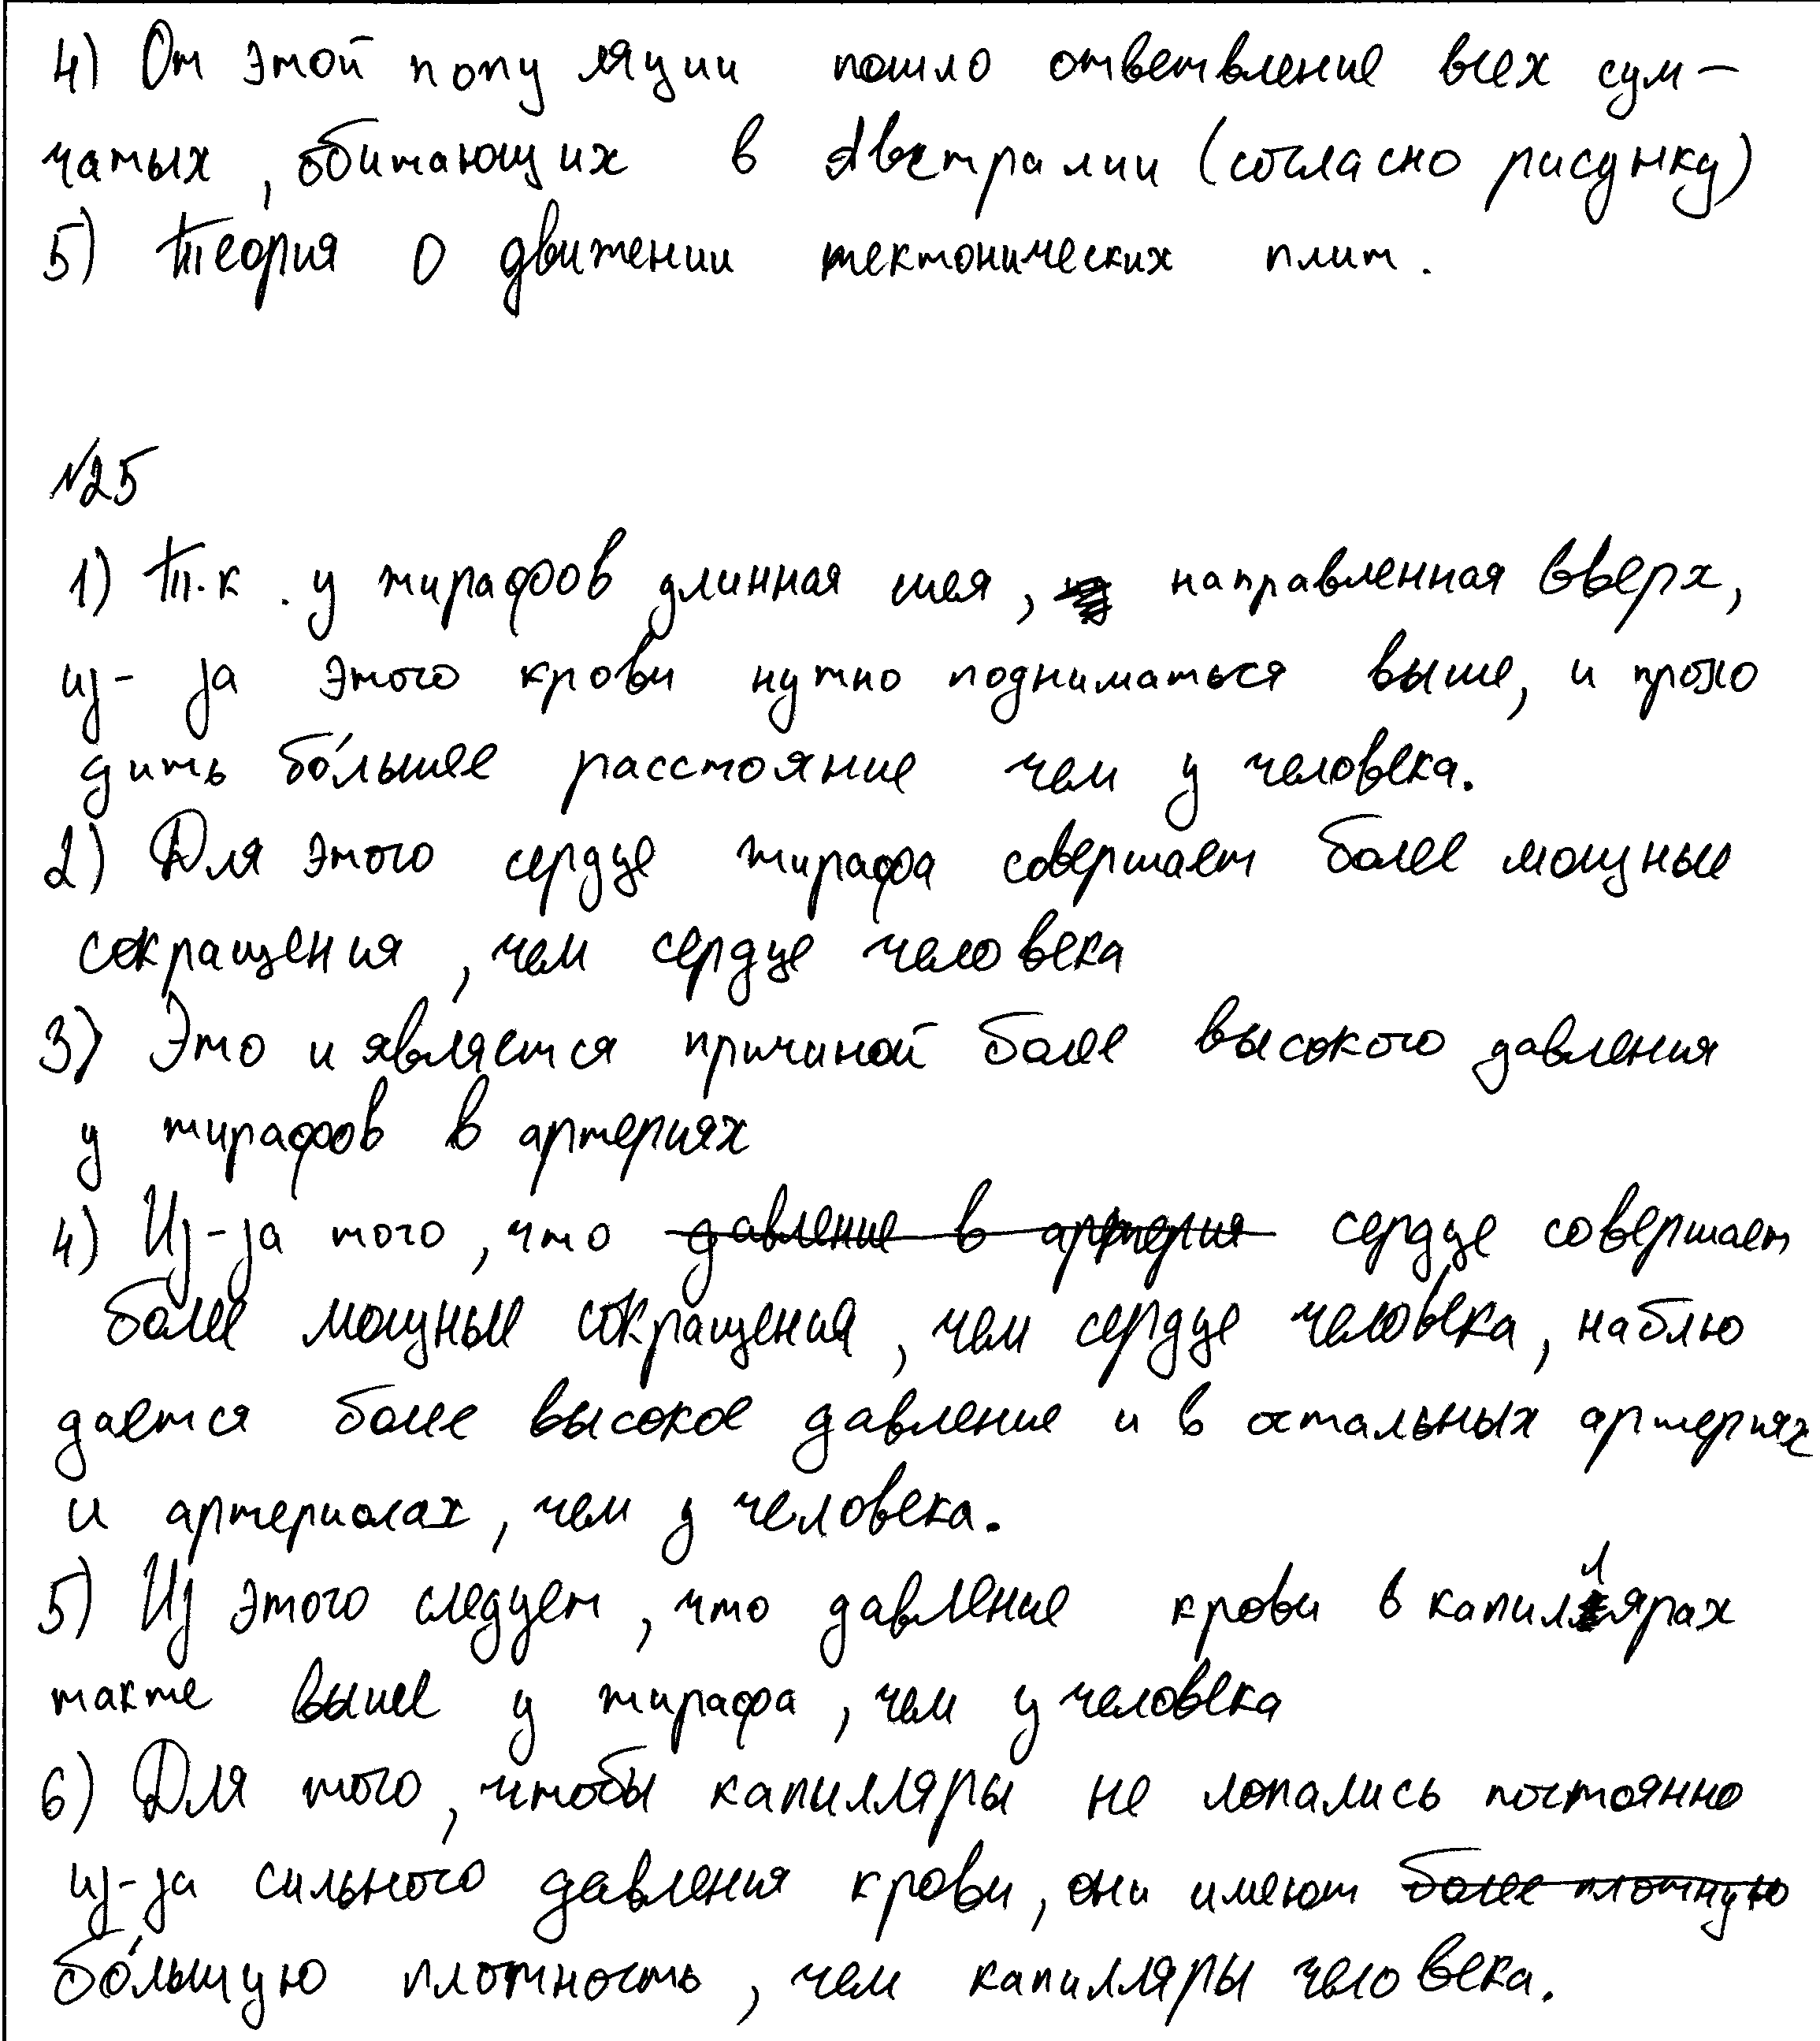 4) От этой популяции пошло ответвление всех сум-
чатых, обитающих в Австралии (согласно рисунку)
5) Теория о движении тектонических плит.
№25
1) Т.к. у жирафов длинная шея, направленная вверх,
из-за этого крови нужно подниматься выше, и прохо
дить бо́льшее расстояние чем у человека.
2) Для этого сердце жирафа совершает более мощные
сокращения, чем сердце человека
3) Это и является причиной более высокого давления
у жирафов в артериях
4) Из-за того, что давление в артерия сердце совершает
более мощные сокращения, чем сердце человека, наблю
дается более высокое давление и в остальных артериях
и артериолах, чем у человека.
5) Из этого следует, что давление крови в капиллярах
также выше у жирафа, чем у человека
6) Для того, чтобы капилляры не лопались постоянно
из-за сильного давления крови, они имеют более плотную
бо́льшую плотность, чем капилляры человека.